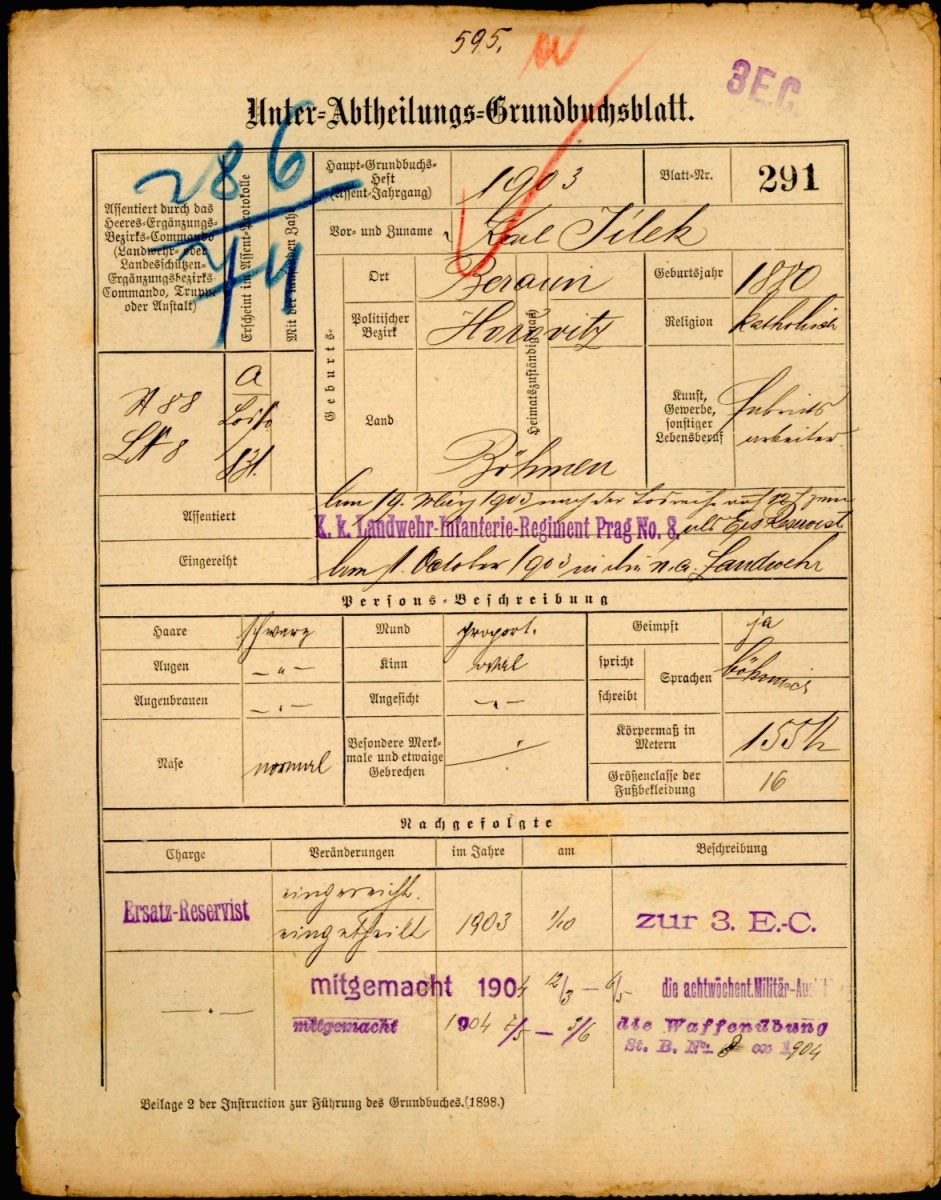 595.
3 E.C.
Unter-Abtheilungs-Grundbuchsblatt.
286
74
Assentiert durch das Heeres-Ergänzungs-Bezirks-Commando (Landwehr- oder Landesschützen-Ergänzungsbezirks-Commando, Truppe oder Anstalt)
Erscheint im Assent-Protokolle
Mit der
Haupt-Grundbuchs-Heft (Assent-Jahrgang)
1903
Blatt-Nr.
291
Vor- und Zuname
Karl Jílek
Geburts-
Ort
Beraun
Geburtsjahr
1880
Politischer Bezirk
Hořovitz
Heimatszuständig (nach)
Religion
katholisch
Land
Böhmen
Kunst, Gewerbe, sonstiger Lebensberuf
Fabriks
arbeiter
a
88
8
Assentiert
Am 19. März 1903 nach der
K. k. Landwehr-Infanterie-Regiment Prag No. 8. als Ers Reservist
Eingereiht
Am 1. October 1903 in die Landwehr
Persons-Beschreibung
Haare
schwarz
Mund
proport.
Geimpft
ja
Augen
– " –
Kinn
oval
spricht
schreibt
Sprachen
böhmisch
Augenbrauen
– " –
Angesicht
– " –
Nase
normal
Besondere Merkmale und etwaige Gebrechen
Körpermaß in Metern
Größenclasse der Fußbekleidung
16
Nachgefolgte
Charge
Veränderungen
im Jahre
am
Beschreibung
Ersatz-Reservist
eingereiht.
eingetheilt
1903
1/10
zur 3. E.-C.
– " –
mitgemacht 1904 12/3 – 6/5 die achtwöchent. Militär-Aus
mitgemacht 1904 7/5 – 3/6 die Waffenübung
St. B. No. 8 ex 1904
Beilage 2 der Instruction zur Führung des Grundbuches. (1898.)